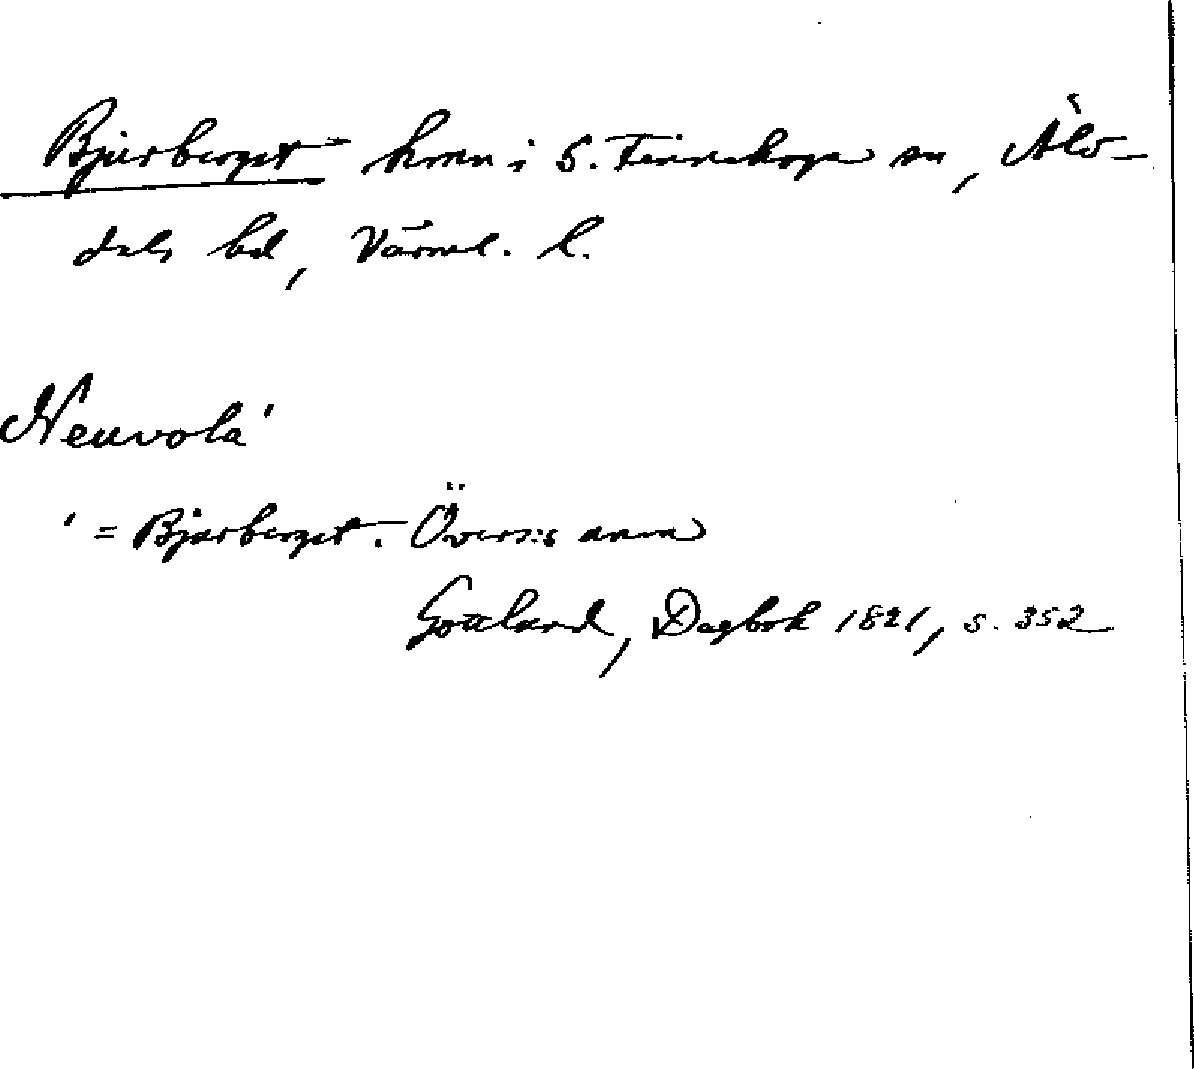 Bjurberget hmn i S. Finnskoga sn, Älv-
dals hd, Värml. l.
Neuvola'
' = Bjurberget. Övers:s anm
Gottlund, Dagbok 1821, s. 352